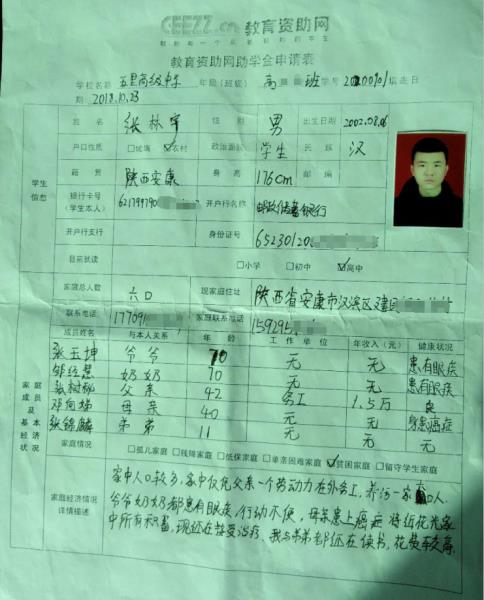 CEEZZ.cn 教育资助网
教育资助网助学金申请表
学校名称 五里高级中学 年级(班级) 高 班 学号 填走日
期 2018.10.23
姓名 张林宇 性别 男 出生日期 2002.08.06
户口性质 □城镇 ☑农村 政治面貌 学生 民族 汉
籍贯 陕西安康 身高 176cm 邮编
学生信息
银行卡号(学生本人) 621799790 开户行名称 邮政储蓄银行
开户行支行 身份证号 65230120
目前就读 □小学 □初中 ☑高中
家庭总人数 六口 现家庭住址 陕西省安康市汉滨区建民
联系电话 177091 家庭联系电话 159295
成员姓名 与本人关系 年龄 工作单位 年收入(元) 健康状况
张玉坤 爷爷 70 无 无 患有眼疾
邹经慧 奶奶 70 无 无 患有眼疾
张树 父亲 42 务工 1.5万 良
邓向 母亲 40 无 无 身患癌症
张锦麟 弟弟 11 无 无
家庭成员及基本经济状况
家庭情况 □孤儿家庭 □残障家庭 □低保家庭 □单亲困难家庭 ☑贫困家庭 □留守学生家庭
家庭经济情况详情描述
家中人口较多,家中仅凭父亲一个劳动力在外务工,养活一家 口人
爷爷奶奶都患有眼疾,行动不便,母亲患上癌症 将近花光家
中所有积蓄,现还在接受治疗,我与弟弟都还在读书,花费较高